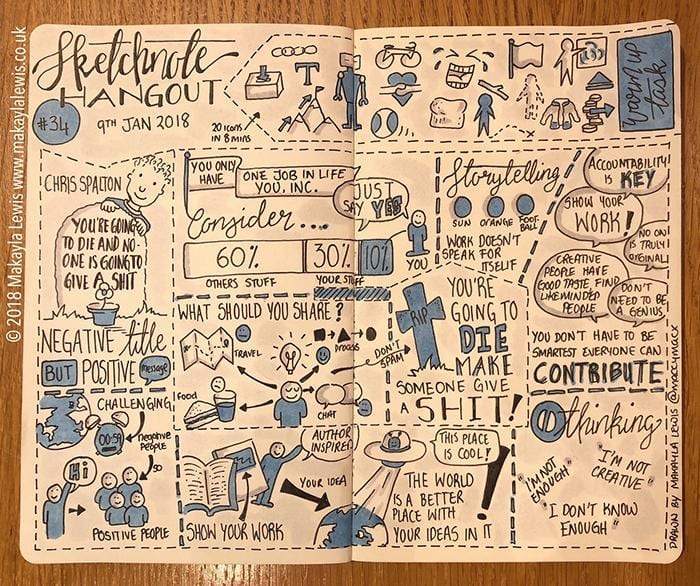 © 2018 Makayla Lewis www.makaylalewis.co.uk
Sketchnote
HANGOUT
#34
9TH JAN 2018
20 icons
IN 8 MINS
T
warm up
task
CHRIS SPALTON
YOU'RE GOING
TO DIE AND NO-
ONE IS GOING TO
GIVE A SHIT
NEGATIVE title
BUT POSITIVE message
CHALLENGING
00:59
negative
PEOPLE
Hi
SO
POSITIVE PEOPLE
YOU ONLY
HAVE
ONE JOB IN LIFE
YOU. INC.
JUST
SAY YES
Consider...
60%
30%
10%
YOU
OTHERS STUFF
YOUR STUFF
WHAT SHOULD YOU SHARE?
TRAVEL
PROCESS
DON'T
SPAM
food
CHAT
SHOW YOUR WORK
AUTHOR
INSPIRED
YOUR IDEA
Storytelling
SUN
ORANGE
FOOT-
BALL
WORK DOESN'T
SPEAK FOR
ITSELF
RIP
YOU'RE
GOING TO
DIE
MAKE
SOMEONE GIVE
A SHIT!
THIS PLACE
IS COOL!
THE WORLD
IS A BETTER
PLACE WITH
YOUR IDEAS IN IT
ACCOUNTABILITY
IS KEY
SHOW YOUR
WORK!
NO ONE
IS TRULY
ORIGINAL
CREATIVE
PEOPLE HAVE
GOOD TASTE, FIND
LIKEMINDED
PEOPLE
DON'T
NEED TO BE
A GENIUS
YOU DON'T HAVE TO BE
SMARTEST EVERYONE CAN
CONTRIBUTE
thinking
"I'M NOT
ENOUGH"
"I'M NOT
CREATIVE"
"I DON'T KNOW
ENOUGH"
DRAWN BY MAKAYLA LEWIS @maccymacx